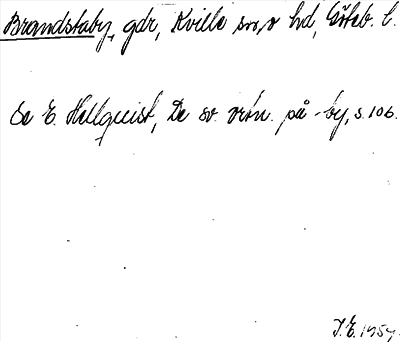 Brandstaby, gdr, Kville sn, o hd, Göteb. l.
Se E. Hellquist, De sv. ortn. på -by, s. 106.
J.E. 1954.